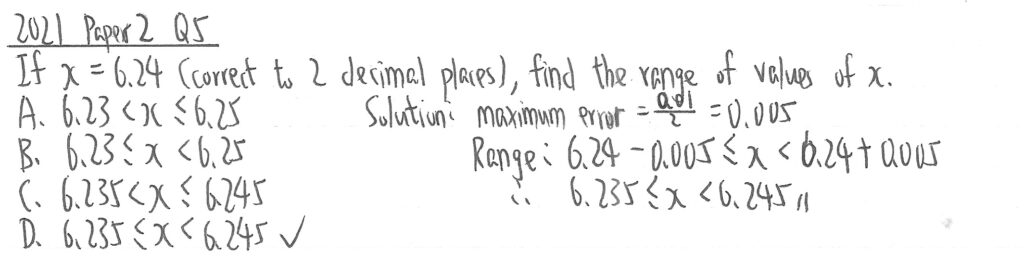 2021 Paper 2 Q5
If x = 6.24 (correct to 2 decimal places), find the range of values of x.
A. 6.23 < x ≤ 6.25
Solution: maximum error = 0.01/2 = 0.005
B. 6.23 ≤ x < 6.25
Range: 6.24 - 0.005 ≤ x < 6.24 + 0.005
C. 6.235 < x ≤ 6.245
∴ 6.235 ≤ x < 6.245 //
D. 6.235 ≤ x < 6.245 ✓